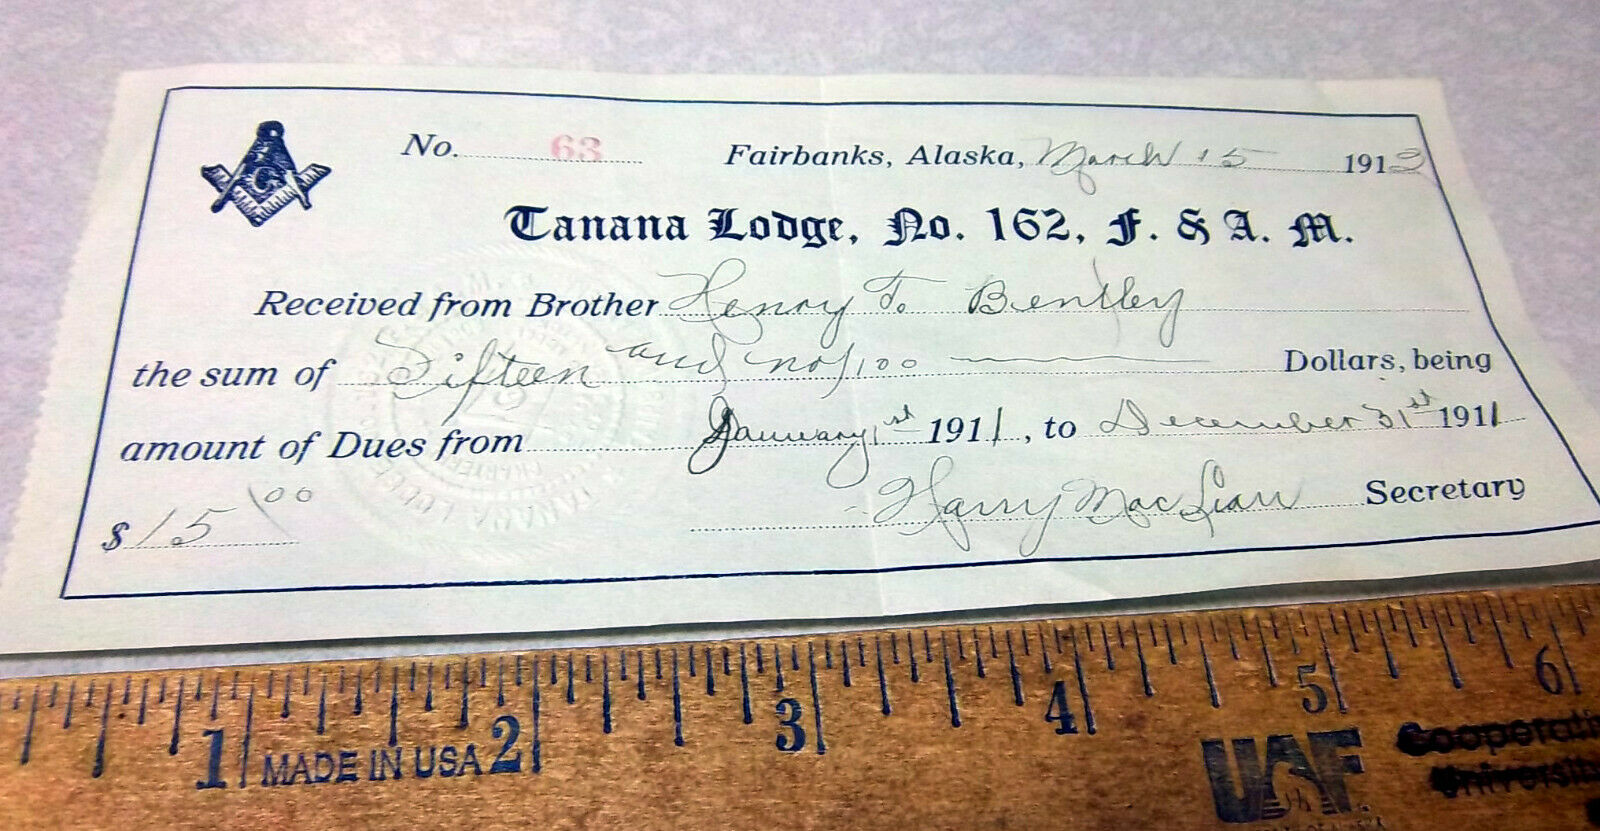 No. 63 Fairbanks, Alaska, March 15 1913
Tanana Lodge, No. 162, F. & A. M.
Received from Brother Henry T. Bentley
the sum of Fifteen and no/100 Dollars, being
amount of Dues from January 1st 1911, to December 31st 1911
$15 00 Harry MacLean Secretary
G
1 MADE IN USA 2 3 4 5 6
UAF Cooperati
Universit